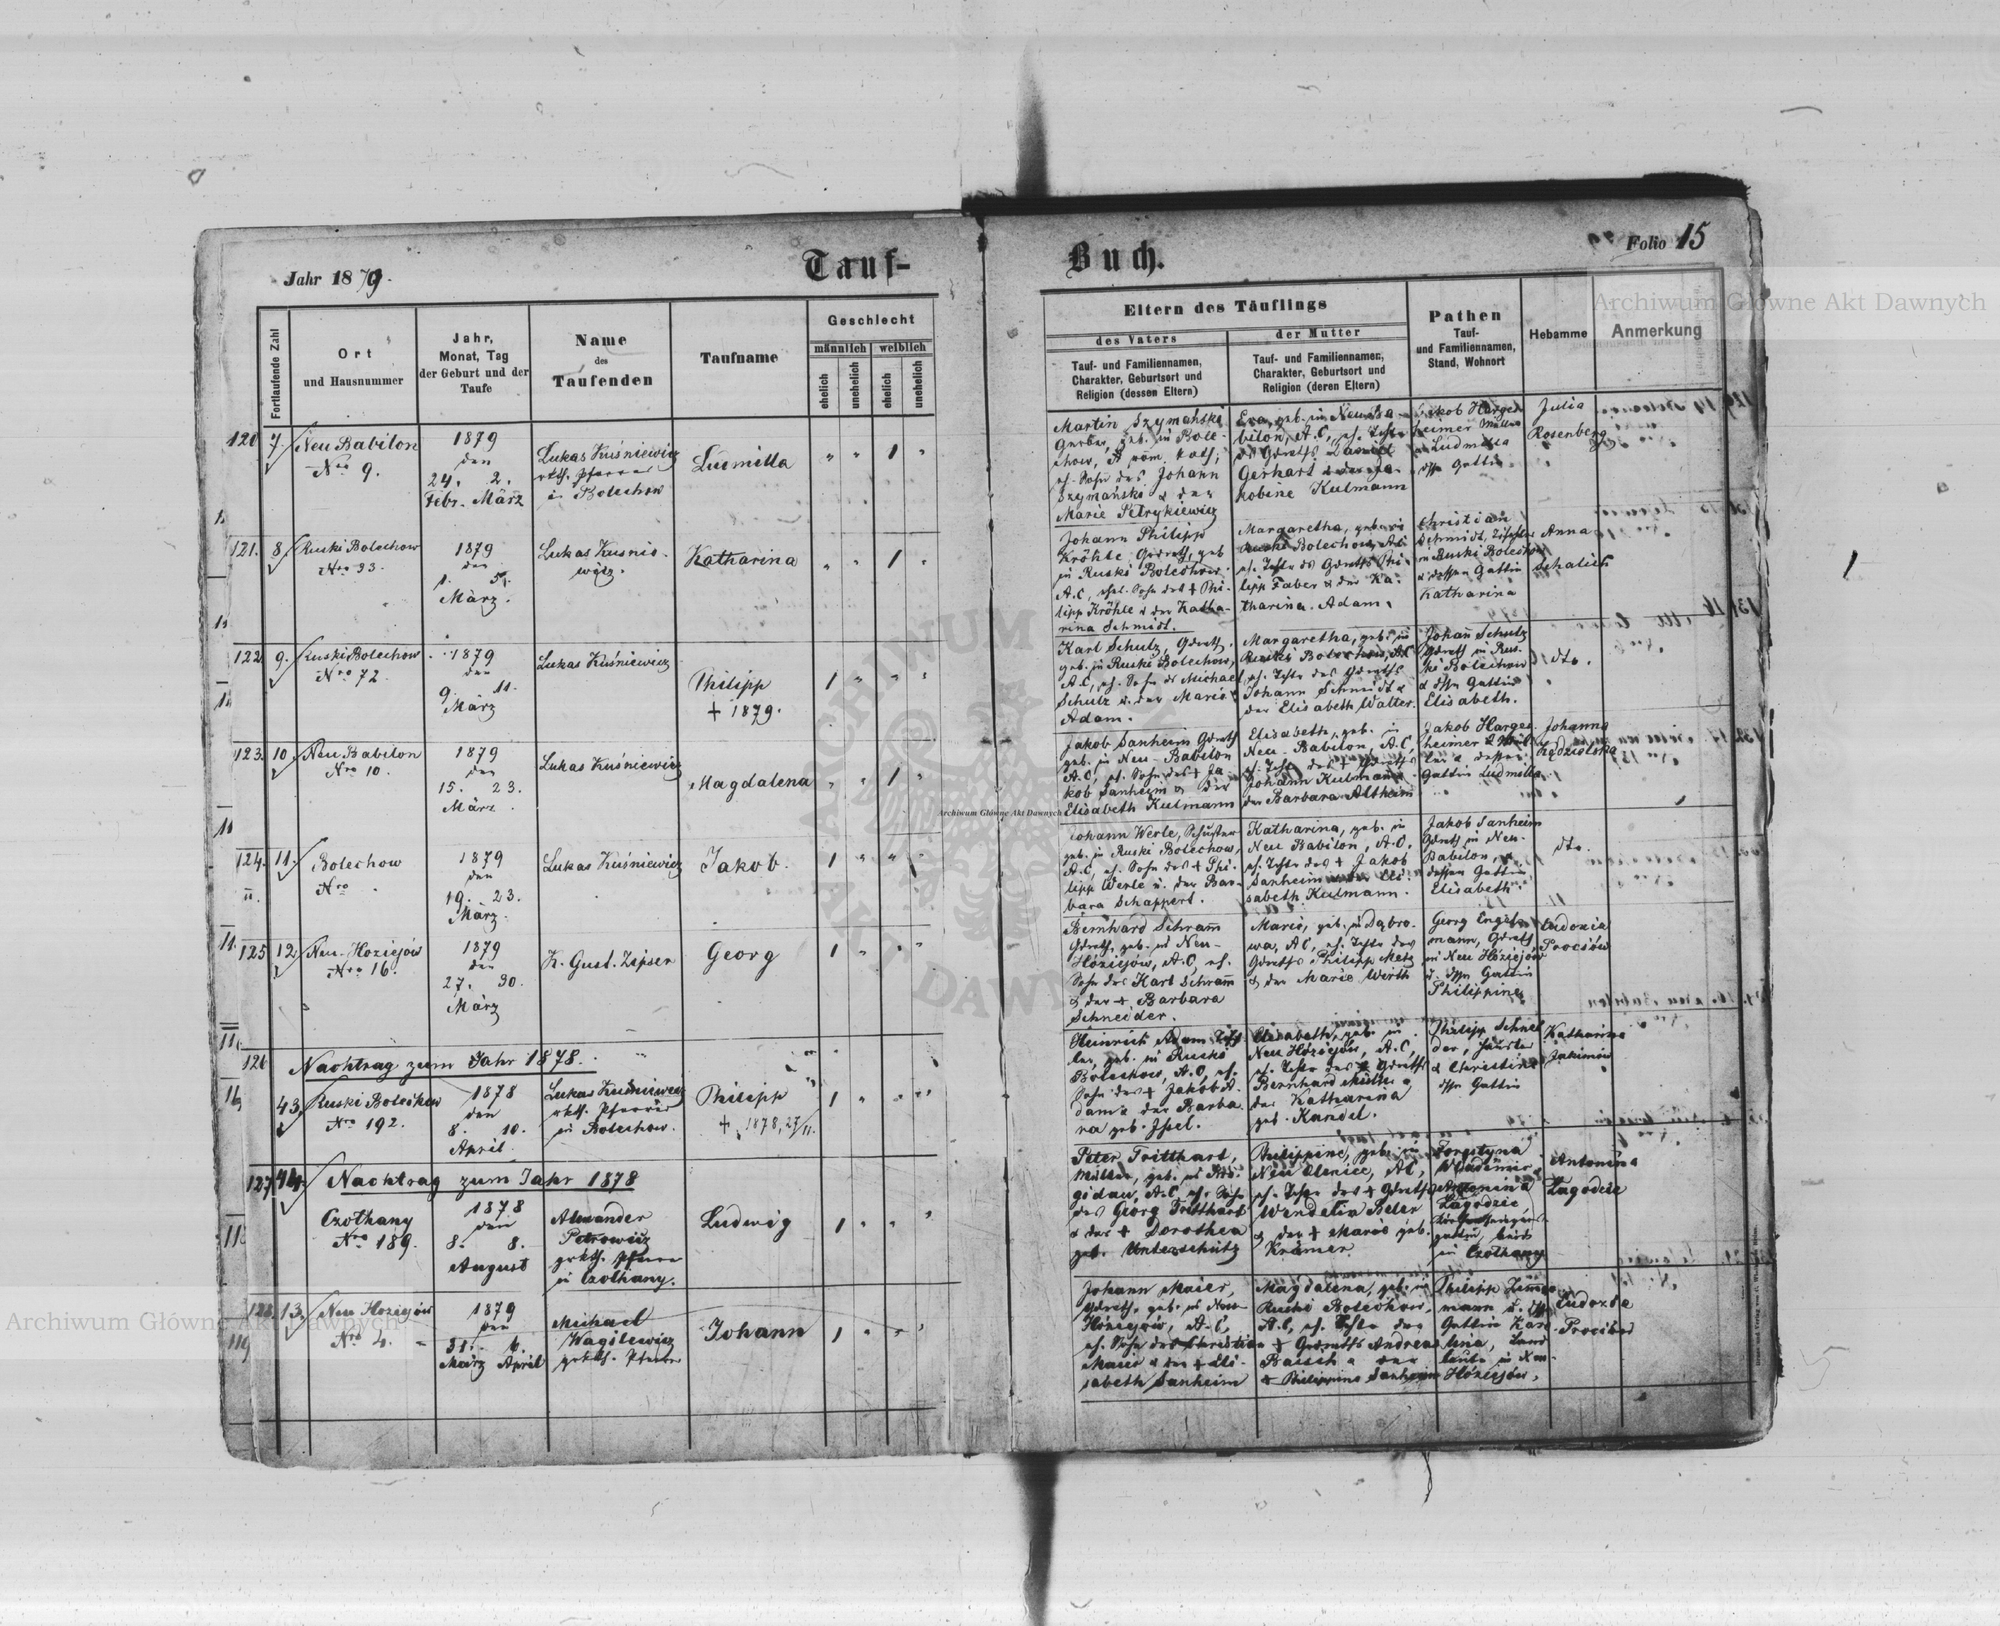 Jahr 1879.
Tauf-
Buch.
Folio 15
Fortlaufende Zahl
Ort
und Hausnummer
Jahr,
Monat, Tag
der Geburt und der
Taufe
Name
des
Taufenden
Taufname
Geschlecht
männlich weiblich
ehelich unehelich ehelich unehelich
Eltern des Täuflings
des Vaters
Tauf- und Familiennamen,
Charakter, Geburtsort und
Religion (dessen Eltern)
der Mutter
Tauf- und Familiennamen,
Charakter, Geburtsort und
Religion (deren Eltern)
Pathen
Tauf-
und Familiennamen,
Stand, Wohnort
Hebamme
Anmerkung
120 7.
Neu Babilon
Nro 9.
1879
den
24. 2.
Febr. März
Lukas Kuśniewicz
rkth. Pfarrer
in Bolechow
Ludmilla
" " 1 "
Martin Szymański
Gerber, geb. in Bole-
chow, röm. kath;
eh. Sohn des Johann
Szymański & der
Marie Petrykiewicz
Eva, geb. in Neu Ba-
bilon, A.C, eh. Tochter
Gerhart & der Ja-
kobine Kulmann
Jakob Harges-
heimer Müller
& Ludmilla
dssn Gattin
Julia
Rosenberg
121. 8
Ruski Bolechow
Nro 33.
1879
den
1. 5.
März.
Lukas Kuśnie-
wicz.
Katharina
" " 1 "
Johann Philipp
Kröhle Gdrth, geb
in Ruski Bolechow
A.C, ehel. Sohn des + Phi-
lipp Kröhle & der Katha-
rina Schmidt.
Margaretha, geb. in
Ruski Bolechow, A.C
eh. Tochter des Gdrths Phi-
lipp Faber & der Ka-
tharina Adam.
Christian
Schmidt, Tischler
in Ruski Bolechow
& dessen Gattin
Katharina
Anna
Schalich
122. 9.
Ruski Bolechow
Nro 72.
1879
den
9. 11.
März
Lukas Kuśniewicz
Philipp
+ 1879.
1 " " "
Karl Schulz, Gdrth,
geb. in Ruski Bolechow,
A.C, eh. Sohn ds Michael
Schulz u. der Marie
Adam.
Margaretha, geb. in
Ruski Bolechow, A.C
eh. Tochter des Gdrths
Johann Schmidt &
der Elisabeth Walter.
Johan̄ Schulz
Gdrth in Rus-
ki Bolechow
& dssn Gattin
Elisabeth.
dto.
123. 10.
Neu Babilon
Nro 10.
1879
den
15. 23.
März.
Lukas Kuśniewicz
Magdalena
" " 1 "
Jakob Sanheim Gdrth
geb. in Neu-Babilon
A.C, eh. Sohn des + Ja-
kob Sanheim & der
Elisabeth Kulmann
Elisabeth, geb. in
Neu-Babilon, A.C,
eh. Tochter des + Gdrths
Johann Kulmann &
der Barbara Altheim
Jakob Harges-
heimer
Gattin Ludmilla
Johanna
Kędzielska
124. 11.
Bolechow
Nro
1879
den
19. 23.
März.
Lukas Kuśniewicz
Jakob.
1 " " "
Johann Werle, Schuster
geb. in Ruski Bolechow,
A.C, eh. Sohn des + Phi-
lipp Werle u. der Bar-
bara Schappert.
Katharina, geb. in
Neu Babilon, A.C.
eh. Tochter des + Jakob
Sanheim & der Eli-
sabeth Kulmann.
Jakob Sanheim
Gdrth in Neu-
Babilon, &
dessen Gattin
Elisabeth.
dto.
125 12.
Neu-Hoziejów
Nro 16.
1879
den
27. 30.
März
K. Gust. Zipser
Georg
1 " " "
Bernhard Schram̄
Gdrth, geb. in Neu-
Hóziejów, A.C, eh.
Sohn des Karl Schram̄
& der + Barbara
Schneider.
Marie, geb. in Dąbro-
wa, AC, eh. Tochter des
Gdrths Philipp Metz
& der Marie Wirth
Georg Engel-
mann, Gdrth
in Neu Hóziejów
u. dssn Gattin
Philippine
Eudoxia
Prociów
126
Nachtrag zum Jahr 1878.
43.
Ruski Bolechow
Nro 192.
1878
den
8. 10.
April
Lukas Kuśniewicz
rkth. Pfarrer
in Bolechow.
Philipp
+ 1878, 27/11.
1 " " "
Heinrich Adam
geb. in Ruski
Bolechow, A.C, eh.
Sohn des + Jakob A-
dam & der Barba-
ra geb. Issel.
Elisabeth, geb. in
Neu Hóziejów, A.C,
eh. Tochter des + Gdrths
Bernhard Müller &
der Katharina
geb. Kandel.
Philipp Schnei-
der,
& Christine
dssn Gattin
Katharina
Jakimów
127 44.
Nachtrag zum Jahr 1878
Czolhany
Nro 189.
1878
den
8. 8.
August
Alexander
Petrowicz
grkth. Pfarrer
in Czolhany.
Ludwig
1 " " "
Peter Tritthart,
Müller, geb. in Bri-
gidau, A.C, eh. Sohn
des Georg Tritthart
& der + Dorothea
geb. Unterschütz
Philippine, geb. in
Neu Oleniec, AC,
eh. Tochter des + Gdrths
Wendelin Beler
& der + Marie geb.
Krämer.
Forgstyna
Wladimir
Antonina
Lagodzic,
in Czolhany
Antonina
Lagodzie
128. 13.
Neu Hoziejów
Nro 4.
1879
den
31. 6.
März April
Michael
Wagilewicz
grkth. Pfarrer
Johann
1 " " "
Johann Maier,
Gdrth, geb. in Neu-
Hóziejów, A.C,
eh. Sohn des Christian
Maier & der + Eli-
sabeth Sanheim
Magdalena, geb. in
Ruski Bolechow,
A.C, eh. Tochter des
+ Gdrths Andreas
Baisch & der
+ Philippine Sanheim
Philipp Zimmer-
mann u. dssn
Gattin Karo-
lina, Land-
leute in Neu-
Hóziejów,
Eudoxia
Prociów
Archiwum Główne Akt Dawnych
Archiwum Główne Akt Dawnych
Archiwum Główne Akt Dawnych
ARCHIWUM
AKT DAWN